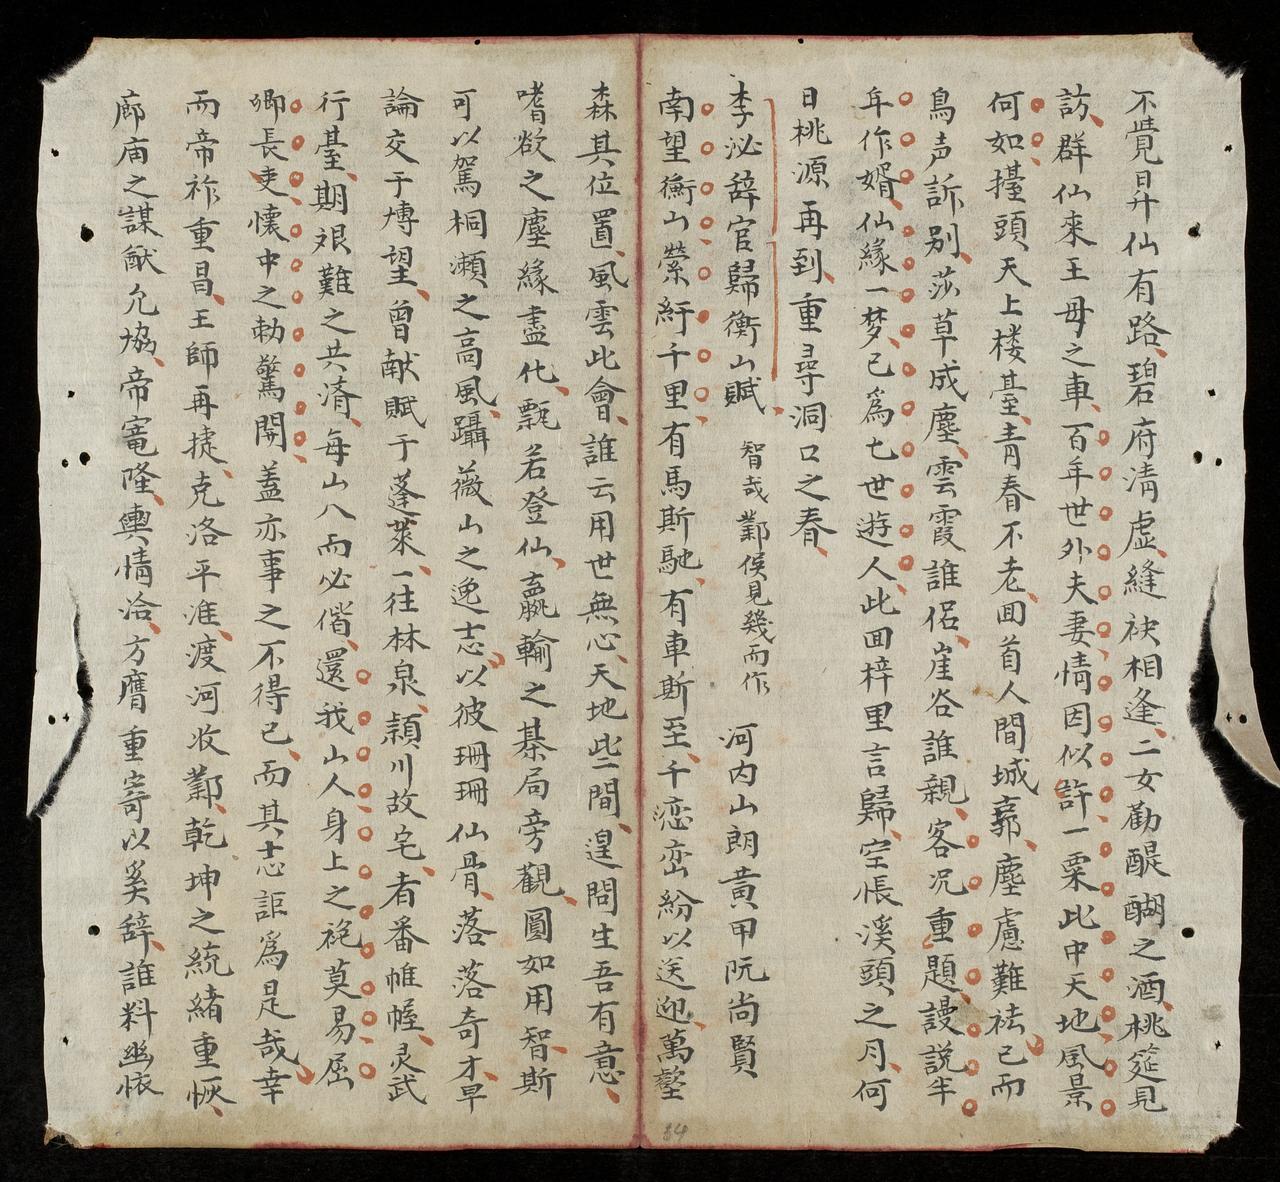 不覺昇仙有路碧府清虛縫袂相逢二女勸醍醐之酒桃筵見
訪群仙來王母之車百年世外夫妻情因似許一粟此中天地風景
何如擡頭天上楼臺青春不老回首人間城郭塵慮難祛已而
鳥声訴别莎草成塵雲霞誰侶崖谷誰親客况重題謾説半
年作婿仙緣一梦已為七世遊人此回梓里言歸空悵溪頭之月何
日桃源再到重尋洞口之春
李泌辞官歸衡山賦 智哉鄴侯見幾而作 河内山朗黃甲阮尚賢
南望衡山縈紆千里有馬斯馳有車斯至千恋峦紛以送迎萬壑
森其位置風雲此會誰云用世無心天地此間遑問生吾有意
嗜欲之塵緣盡化飄若登仙嬴輸之棊局旁觀圓如用智斯
可以駕桐瀬之高風躡薇山之逸志以彼珊珊仙骨落落奇才早
論交于博望曾献賦于蓬萊一往林泉潁川故宅者番帷幄灵武
行臺期艰難之共済每山人而必偕還我山人身上之袍莫易屈
卿長吏懷中之勅驚開蓋亦事之不得已而其志詎為是哉幸
而帝祚重昌王師再捷克洛平淮渡河收鄴乾坤之統緒重恢
廊庙之謀猷允協帝寵隆輿情洽方膺重寄以奚辞誰料幽懷